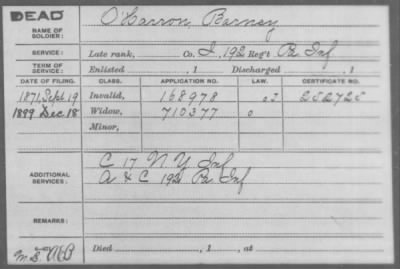 DEAD
NAME OF SOLDIER: O'Harron, Barney
SERVICE: Late rank, Co. I, 192 Reg't Pa Inf
TERM OF SERVICE: Enlisted , 1 Discharged , 1
DATE OF FILING. CLASS. APPLICATION NO. LAW. CERTIFICATE NO.
1871, Sept 19 Invalid, 168978 252725
1889 Dec 18 Widow, 710377
Minor,
ADDITIONAL SERVICES: C 17 N.Y. Inf
A & C 192 Pa Inf
REMARKS:
Died , 1 , at